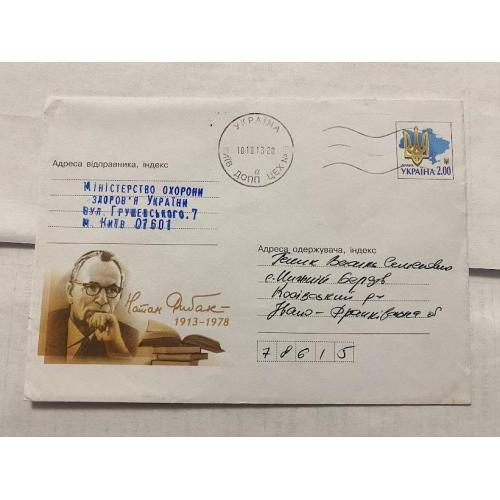 УКРАЇНА
10.10.13-20
КИЇВ ДОПП ЦЕХ №
а
УКРАЇНА 2.00
Адреса відправника, індекс
МІНІСТЕРСТВО ОХОРОНИ
ЗДОРОВ'Я УКРАЇНИ
ВУЛ. ГРУШЕВСЬКОГО, 7
М. КИЇВ 01601
Натан Рибак
1913-1978
Адреса одержувача, індекс
Василь Семенович
с. Нижній Березів
Косівський р-н
Івано-Франківська об
78615